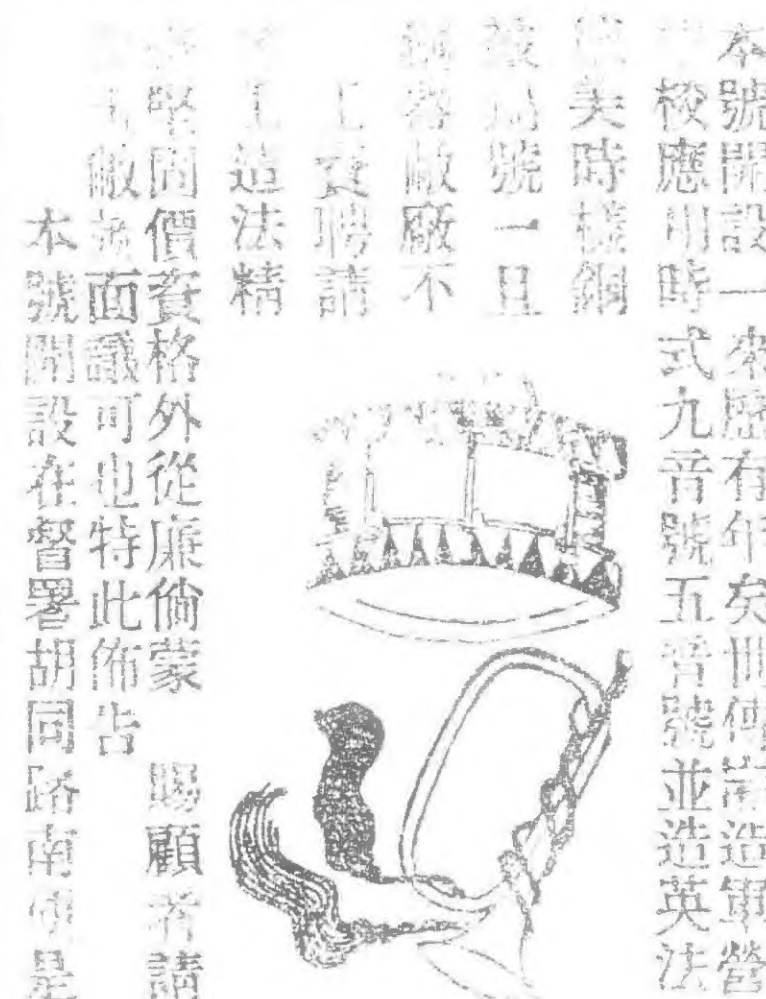 本號開設一來歷有年矣世傳專造軍營
校應用時式九音號五音號並造英法
美時樣銅
號一旦
器敝廠不
工費聘請
工造法精
堅固價資格外從廉倘蒙 賜顧者請
敝號面議可也特此佈告
本號開設在督署胡同路南便是